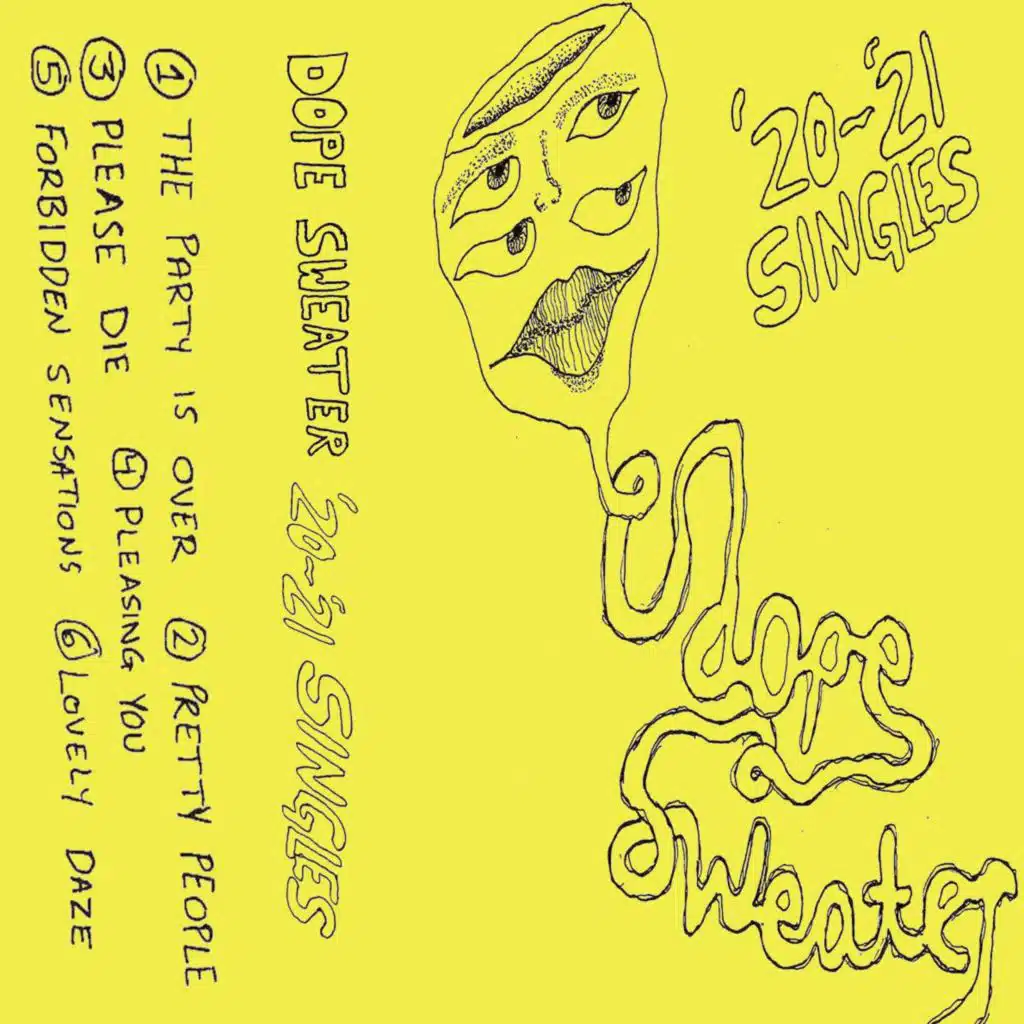 ① THE PARTY IS OVER ② PRETTY PEOPLE
③ PLEASE DIE ④ PLEASING YOU
⑤ FORBIDDEN SENSATIONS ⑥ LOVELY DAZE
DOPE SWEATER '20~'21 SINGLES
'20~'21
SINGLES
dope
sweater